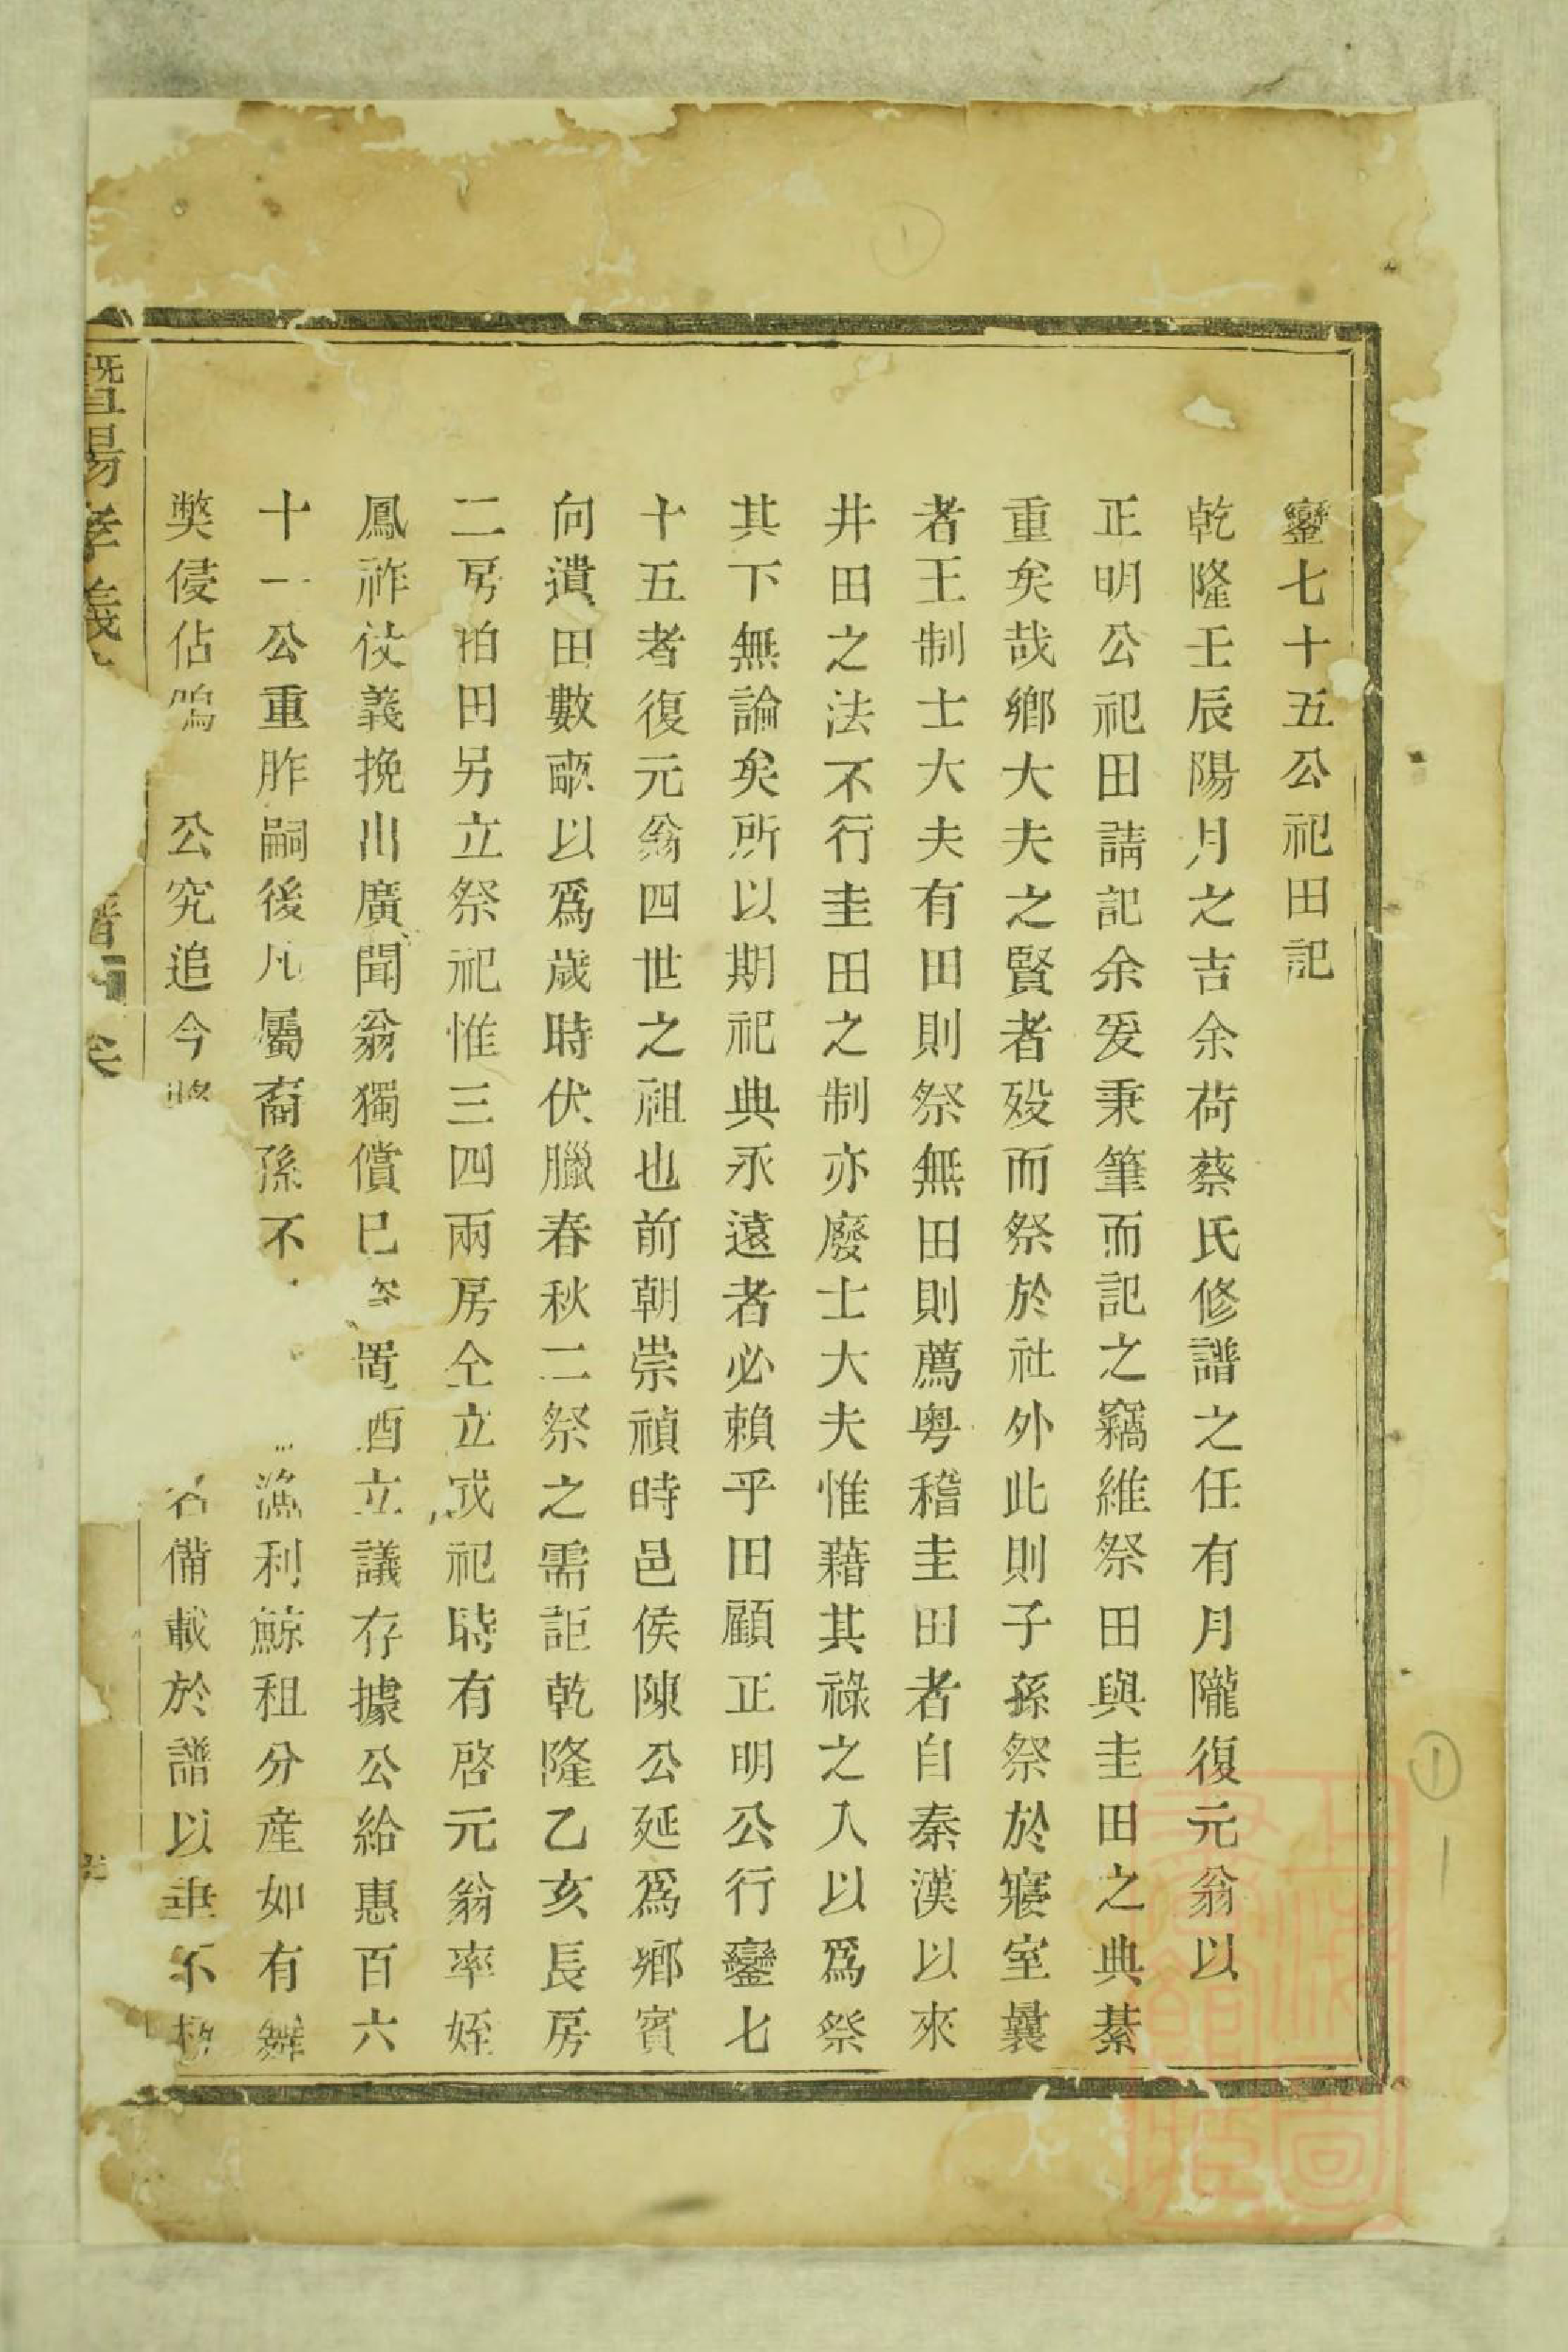 鑾七十五公祀田記
乾隆壬辰陽月之吉余荷蔡氏修譜之任有月隴復元翁以
正明公祀田請記余爰秉筆而記之竊維祭田與圭田之典綦
重矣哉鄉大夫之賢者歿而祭於社外此則子孫祭於寢室曩
者王制士大夫有田則祭無田則薦粤稽圭田者自秦漢以來
井田之法不行圭田之制亦廢士大夫惟藉其祿之入以爲祭
其下無論矣所以期祀典永遠者必賴乎田顧正明公行鑾七
十五者復元翁四世之祖也前朝崇禎時邑侯陳公延爲鄉賓
向遺田數畝以爲歲時伏臘春秋二祭之需詎乾隆乙亥長房
二房拍田另立祭祀惟三四兩房仝立戎祀時有啓元翁率姪
鳳祚仗義挽出廣聞翁獨償已置酒立議存據公給惠百六
十一公重胙嗣後凡屬裔孫不漁利鯨租分産如有舞
獘侵佔鳴公究追今將名備載於譜以垂不
暨陽孝義
譜